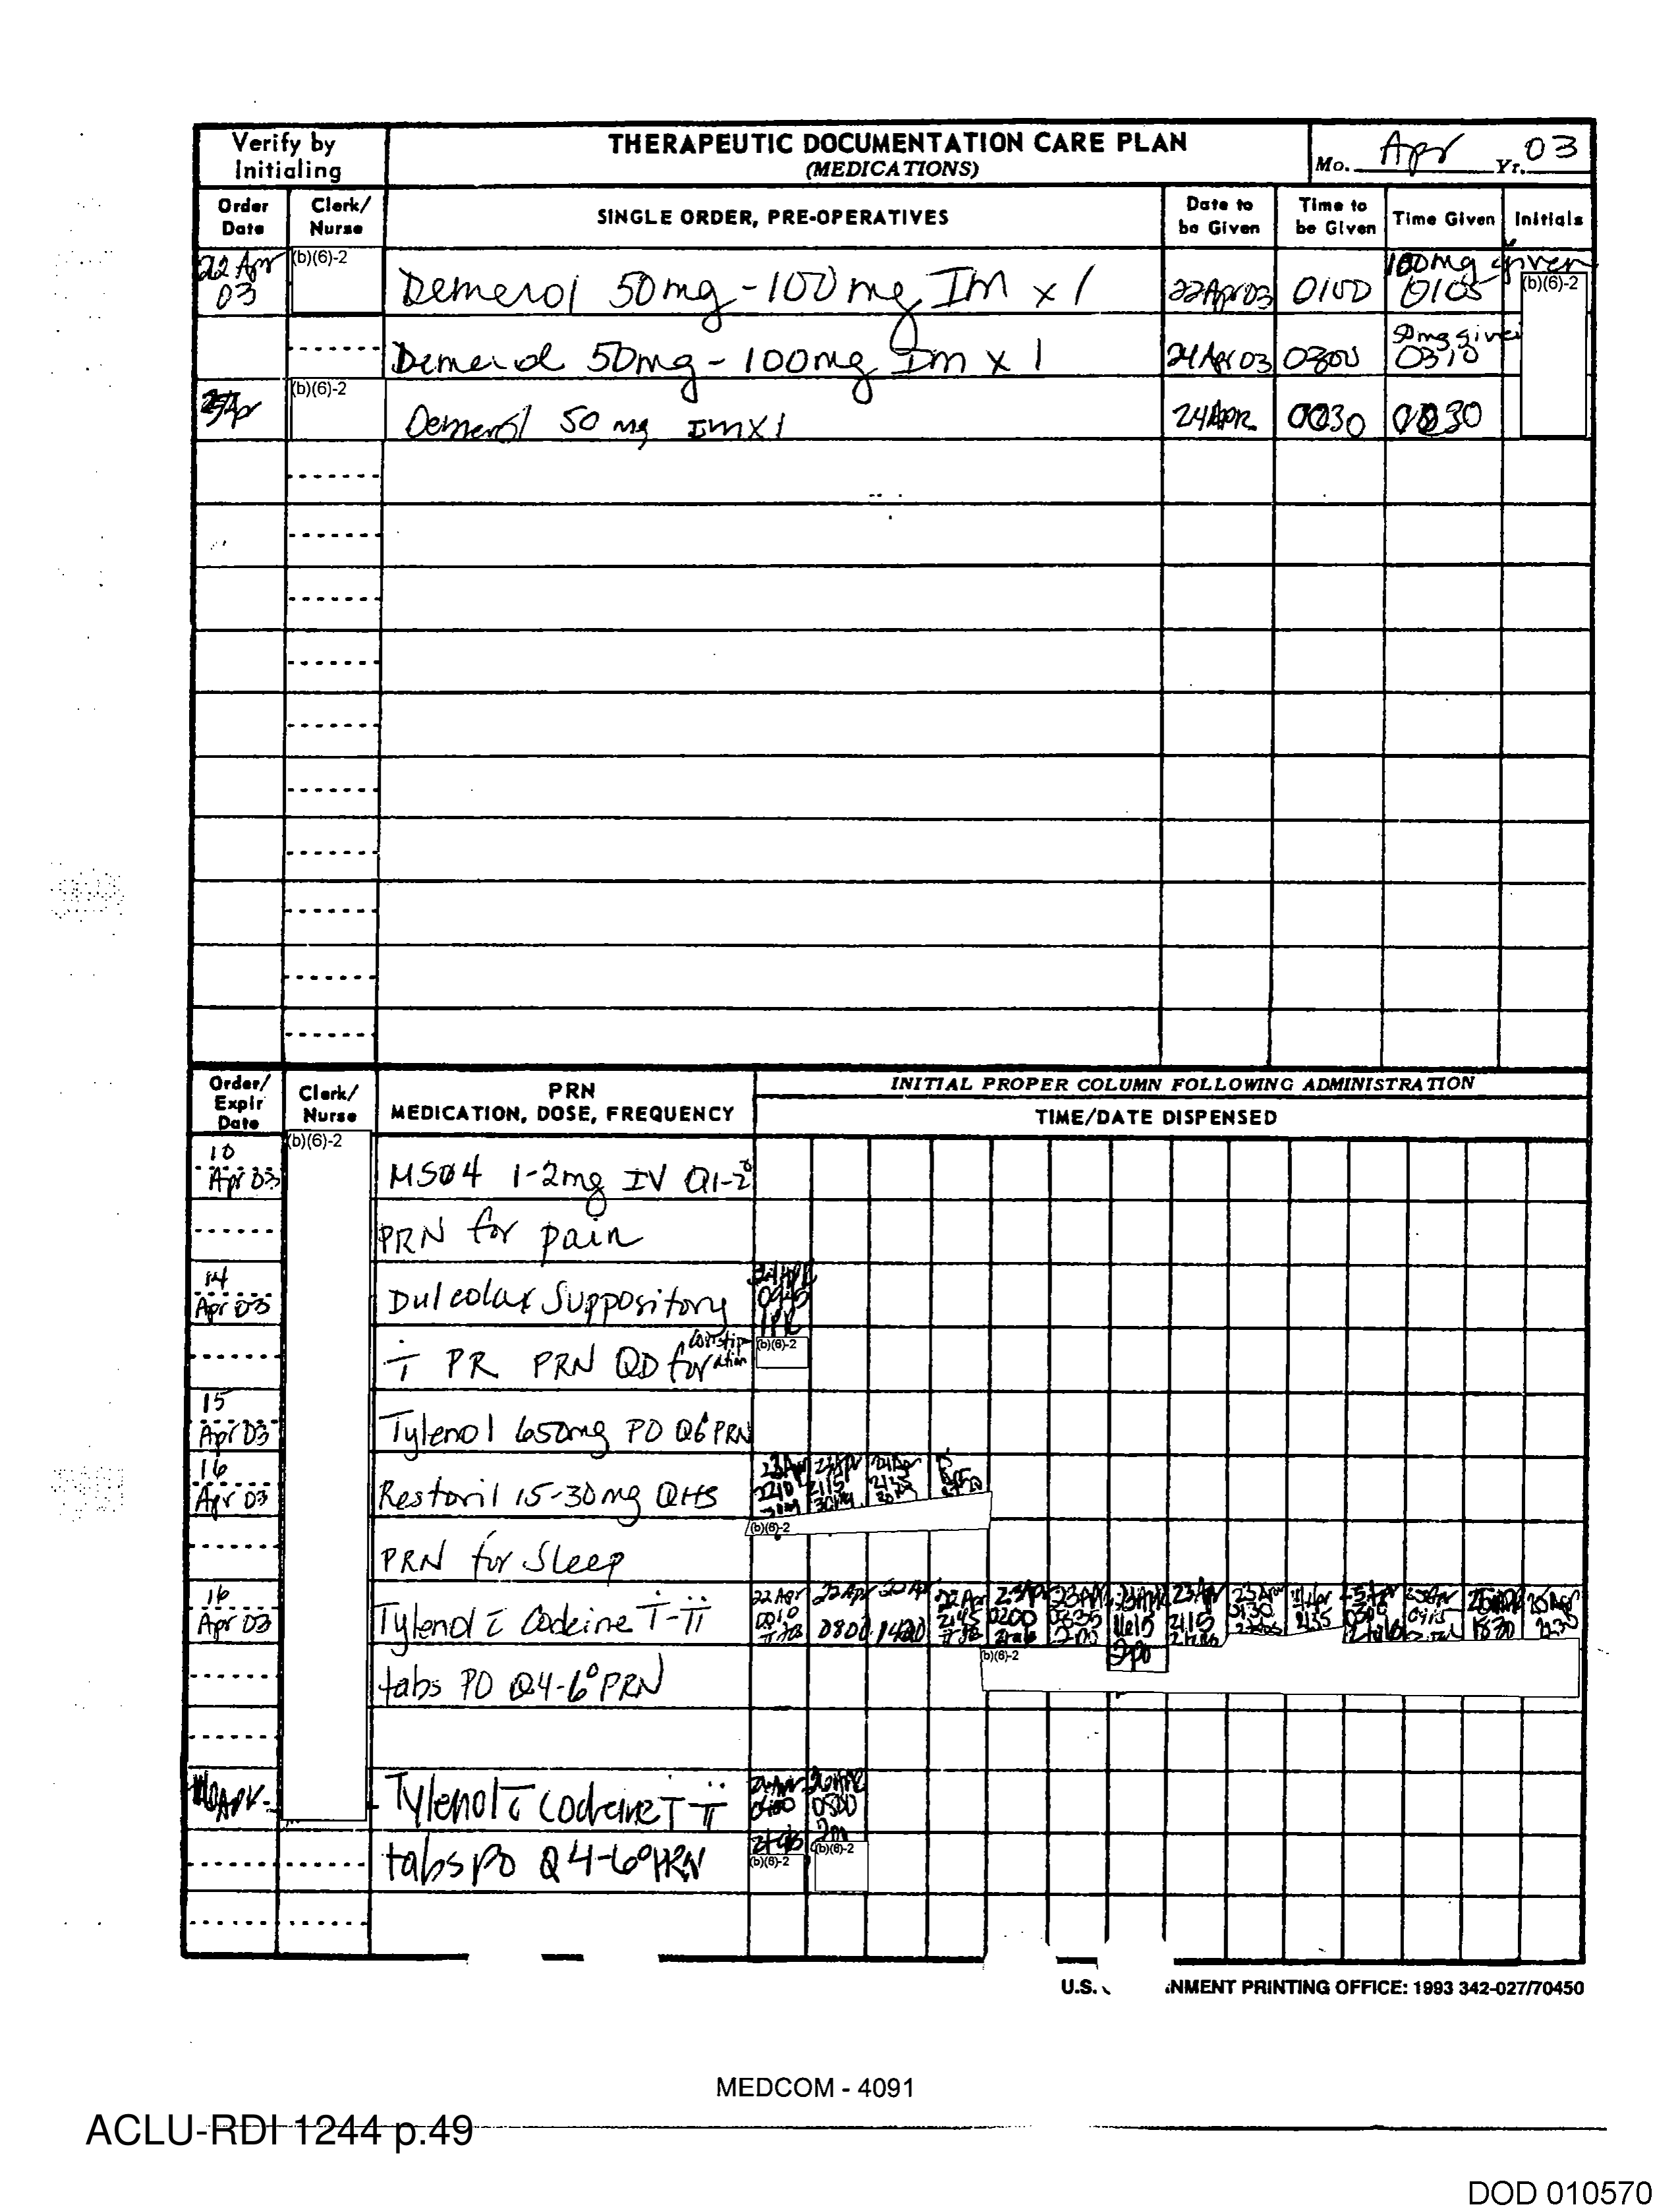 Verify by Initialing
THERAPEUTIC DOCUMENTATION CARE PLAN
(MEDICATIONS)
Mo. Apr Yr. 03
Order Date
Clerk/ Nurse
SINGLE ORDER, PRE-OPERATIVES
Date to be Given
Time to be Given
Time Given
Initials
22 Apr 03
(b)(6)-2
Demerol 50mg - 100mg IM x 1
22Apr03
0100
100mg given
0105
(b)(6)-2
Demerol 50mg - 100mg Im x 1
24Apr03
0300
50mg given
0310
(b)(6)-2
Demerol 50 mg Imx1
24APR
0030
0030
Order/ Expir Date
Clerk/ Nurse
PRN
MEDICATION, DOSE, FREQUENCY
INITIAL PROPER COLUMN FOLLOWING ADMINISTRATION
TIME/DATE DISPENSED
(b)(6)-2
10 Apr 03
MSO4 1-2mg IV Q1-2°
PRN for pain
14 Apr 03
Dulcolax Suppository
0945
1PR
T PR PRN QD for constipation
(b)(6)-2
15 Apr 03
Tylenol 650mg PO Q6° PRN
16 Apr 03
Restoril 15-30mg QHS
23Apr 2210
23Apr 2115
24Apr
(b)(6)-2
PRN for Sleep
16 Apr 03
Tylenol c Codeine T-ii
22 Apr 0010
22 Apr 0800
22 Apr 1420
22 Apr 2145
23Apr 0200 2tabs
23Apr 0635
23APR
23Apr 2115
2135
0300
1830
25Apr
2po
(b)(6)-2
tabs PO Q4-6° PRN
Tylenol c codeine T ii
0400
26APR 0800
2tabs
tabs PO Q4-6° PRN
(b)(6)-2
(b)(6)-2
U.S. NMENT PRINTING OFFICE: 1993 342-027/70450
MEDCOM - 4091
ACLU-RDI 1244 p.49
DOD 010570